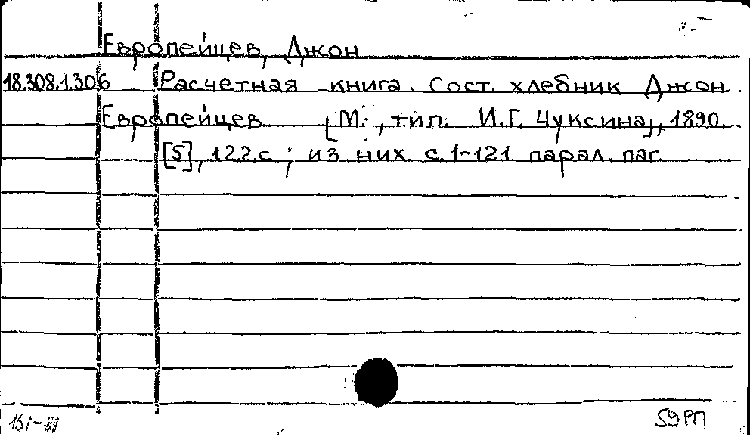 Европейцев, Джон
18.308.1.306 Расчетная книга. Сост. хлебник Джон
Европейцев [М., тип. И.Г. Чуксина], 1890.
[5], 122 с.; из них с. 1-121 парал. паг.